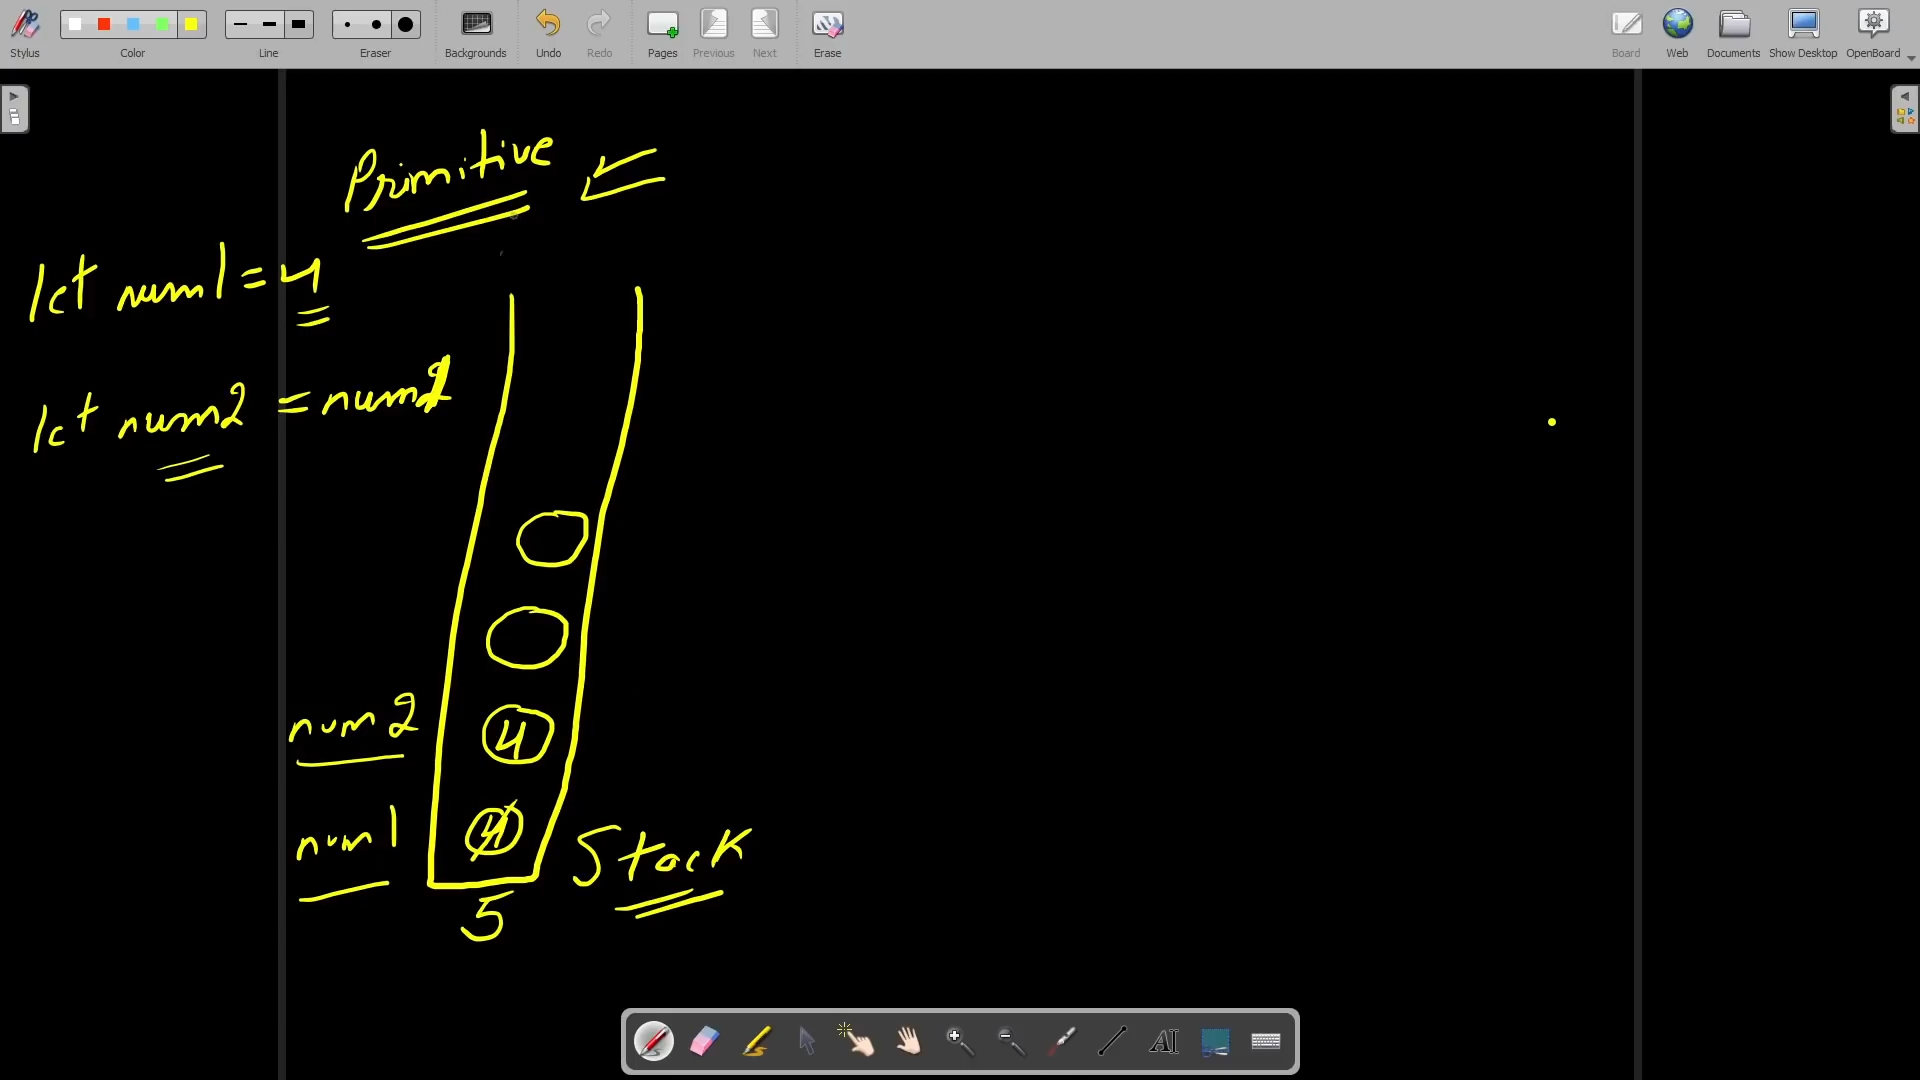 Stylus Color Line Eraser Backgrounds Undo Redo Pages Previous Next Erase Board Web Documents Show Desktop OpenBoard
Primitive
let num1 = 4
let num2 = num1
num2 4
num1 4
Stack
5
AI